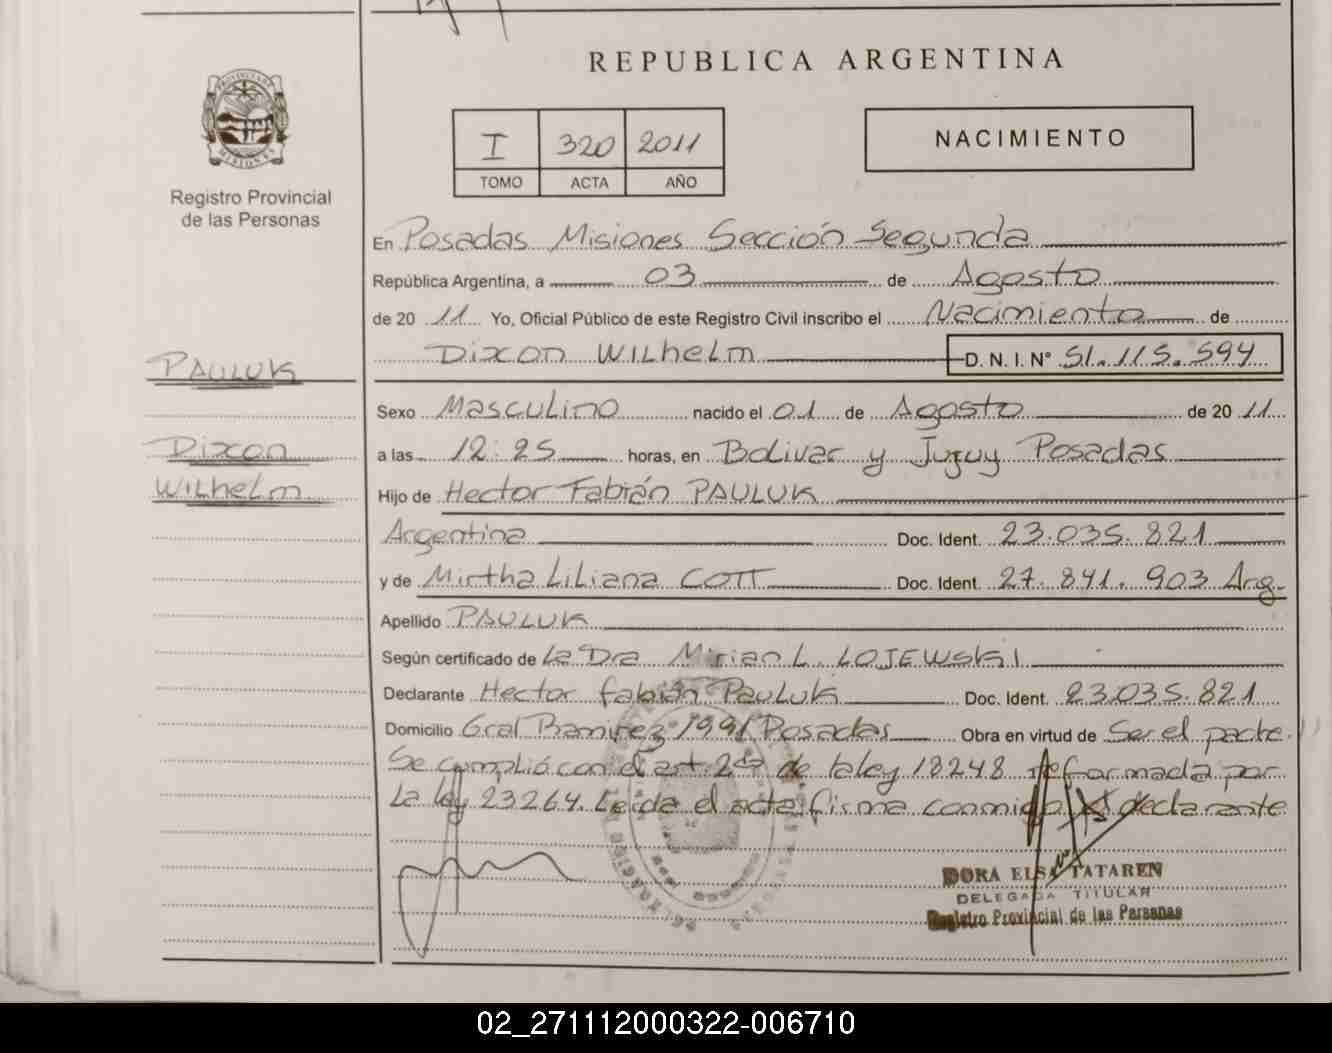 REPUBLICA ARGENTINA
PROVINCIA DE MISIONES
Registro Provincial
de las Personas
I 320 2011
TOMO ACTA AÑO
NACIMIENTO
En Posadas Misiones Sección Segunda
República Argentina, a 03 de Agosto
de 20 11 Yo, Oficial Público de este Registro Civil inscribo el Nacimiento de
Dixon Wilhelm D. N. I. N° 51.115.594
PAULUK
Dixon
Wilhelm
Sexo Masculino nacido el 01 de Agosto de 20 11
a las 12:25 horas, en Bolivar y Jujuy Posadas
Hijo de Hector Fabián PAULUK
Argentina Doc. Ident. 23.035.821
y de Mirtha Liliana COTT Doc. Ident. 27.841.903 Arg
Apellido PAULUK
Según certificado de La Dra Mirian L. LOJEWSKI
Declarante Hector fabián Pauluk Doc. Ident. 23.035.821
Domicilio Gral Ramirez 1991 Posadas Obra en virtud de Ser el padre.
Se cumplió con el art. 2do de la ley 18248 reformada por
la ley 23264. Leida el acta firma conmigo el declarante
DORA ELSA TATAREN
DELEGADA TITULAR
Registro Provincial de las Personas
02_271112000322-006710